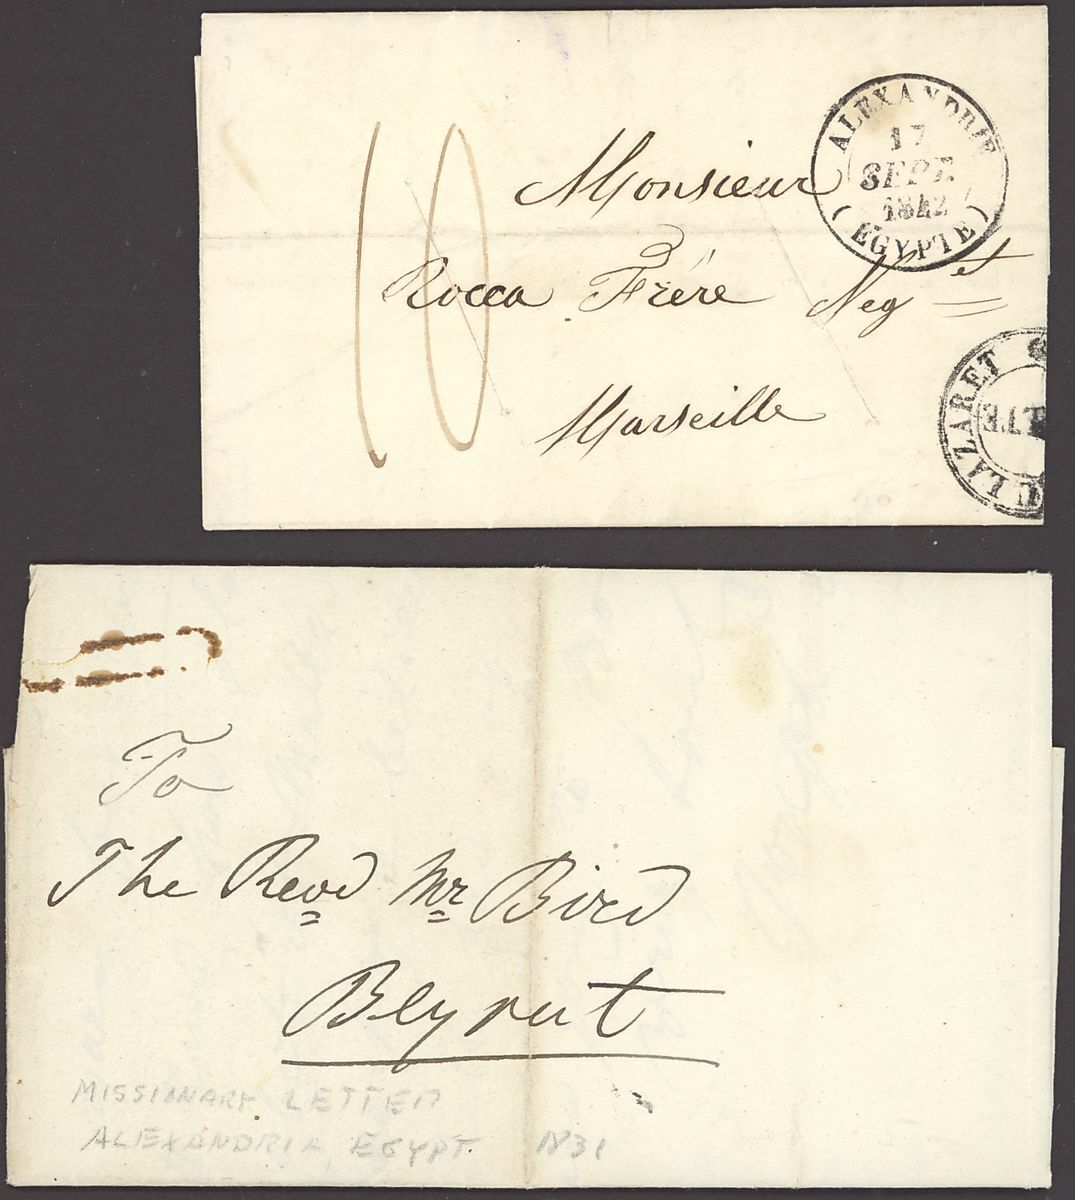 ALEXANDRIE
17
SEPT.
1842
(EGYPTE)
10
Monsieur
Rocca Frére Neg et
Marseille
LAZARET
To
The Revd Mr Bird
Beyrut
MISSIONARY LETTER
ALEXANDRIA, EGYPT. 1831